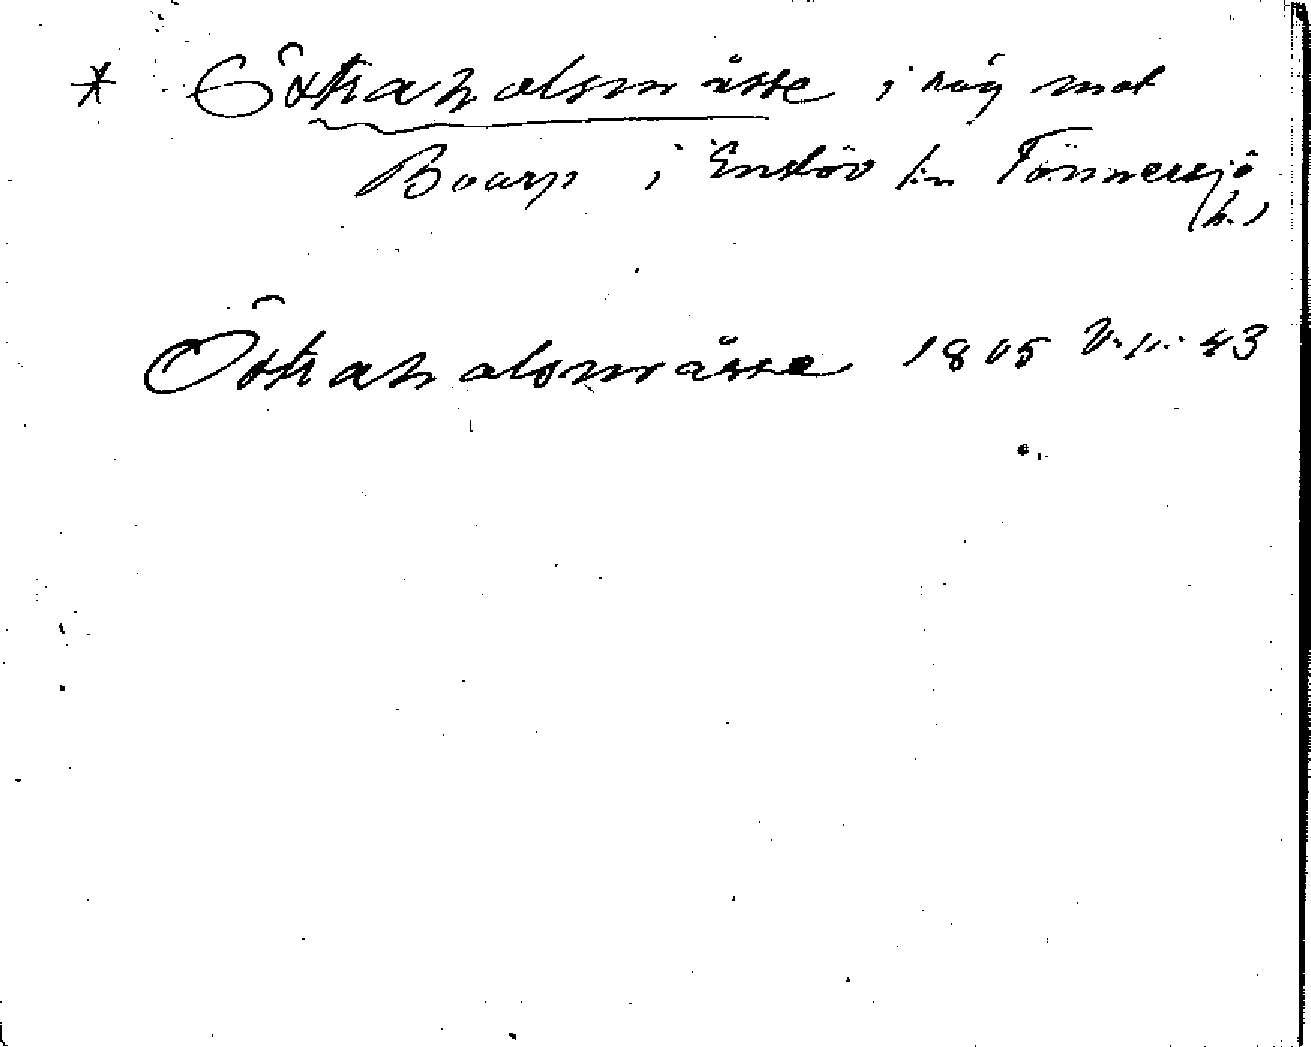 * Östrahalsmåsse i råg mot
Boarp i Enslöv sn Tönnersjö
(h.)
Östrahalsmåsse 1805 43